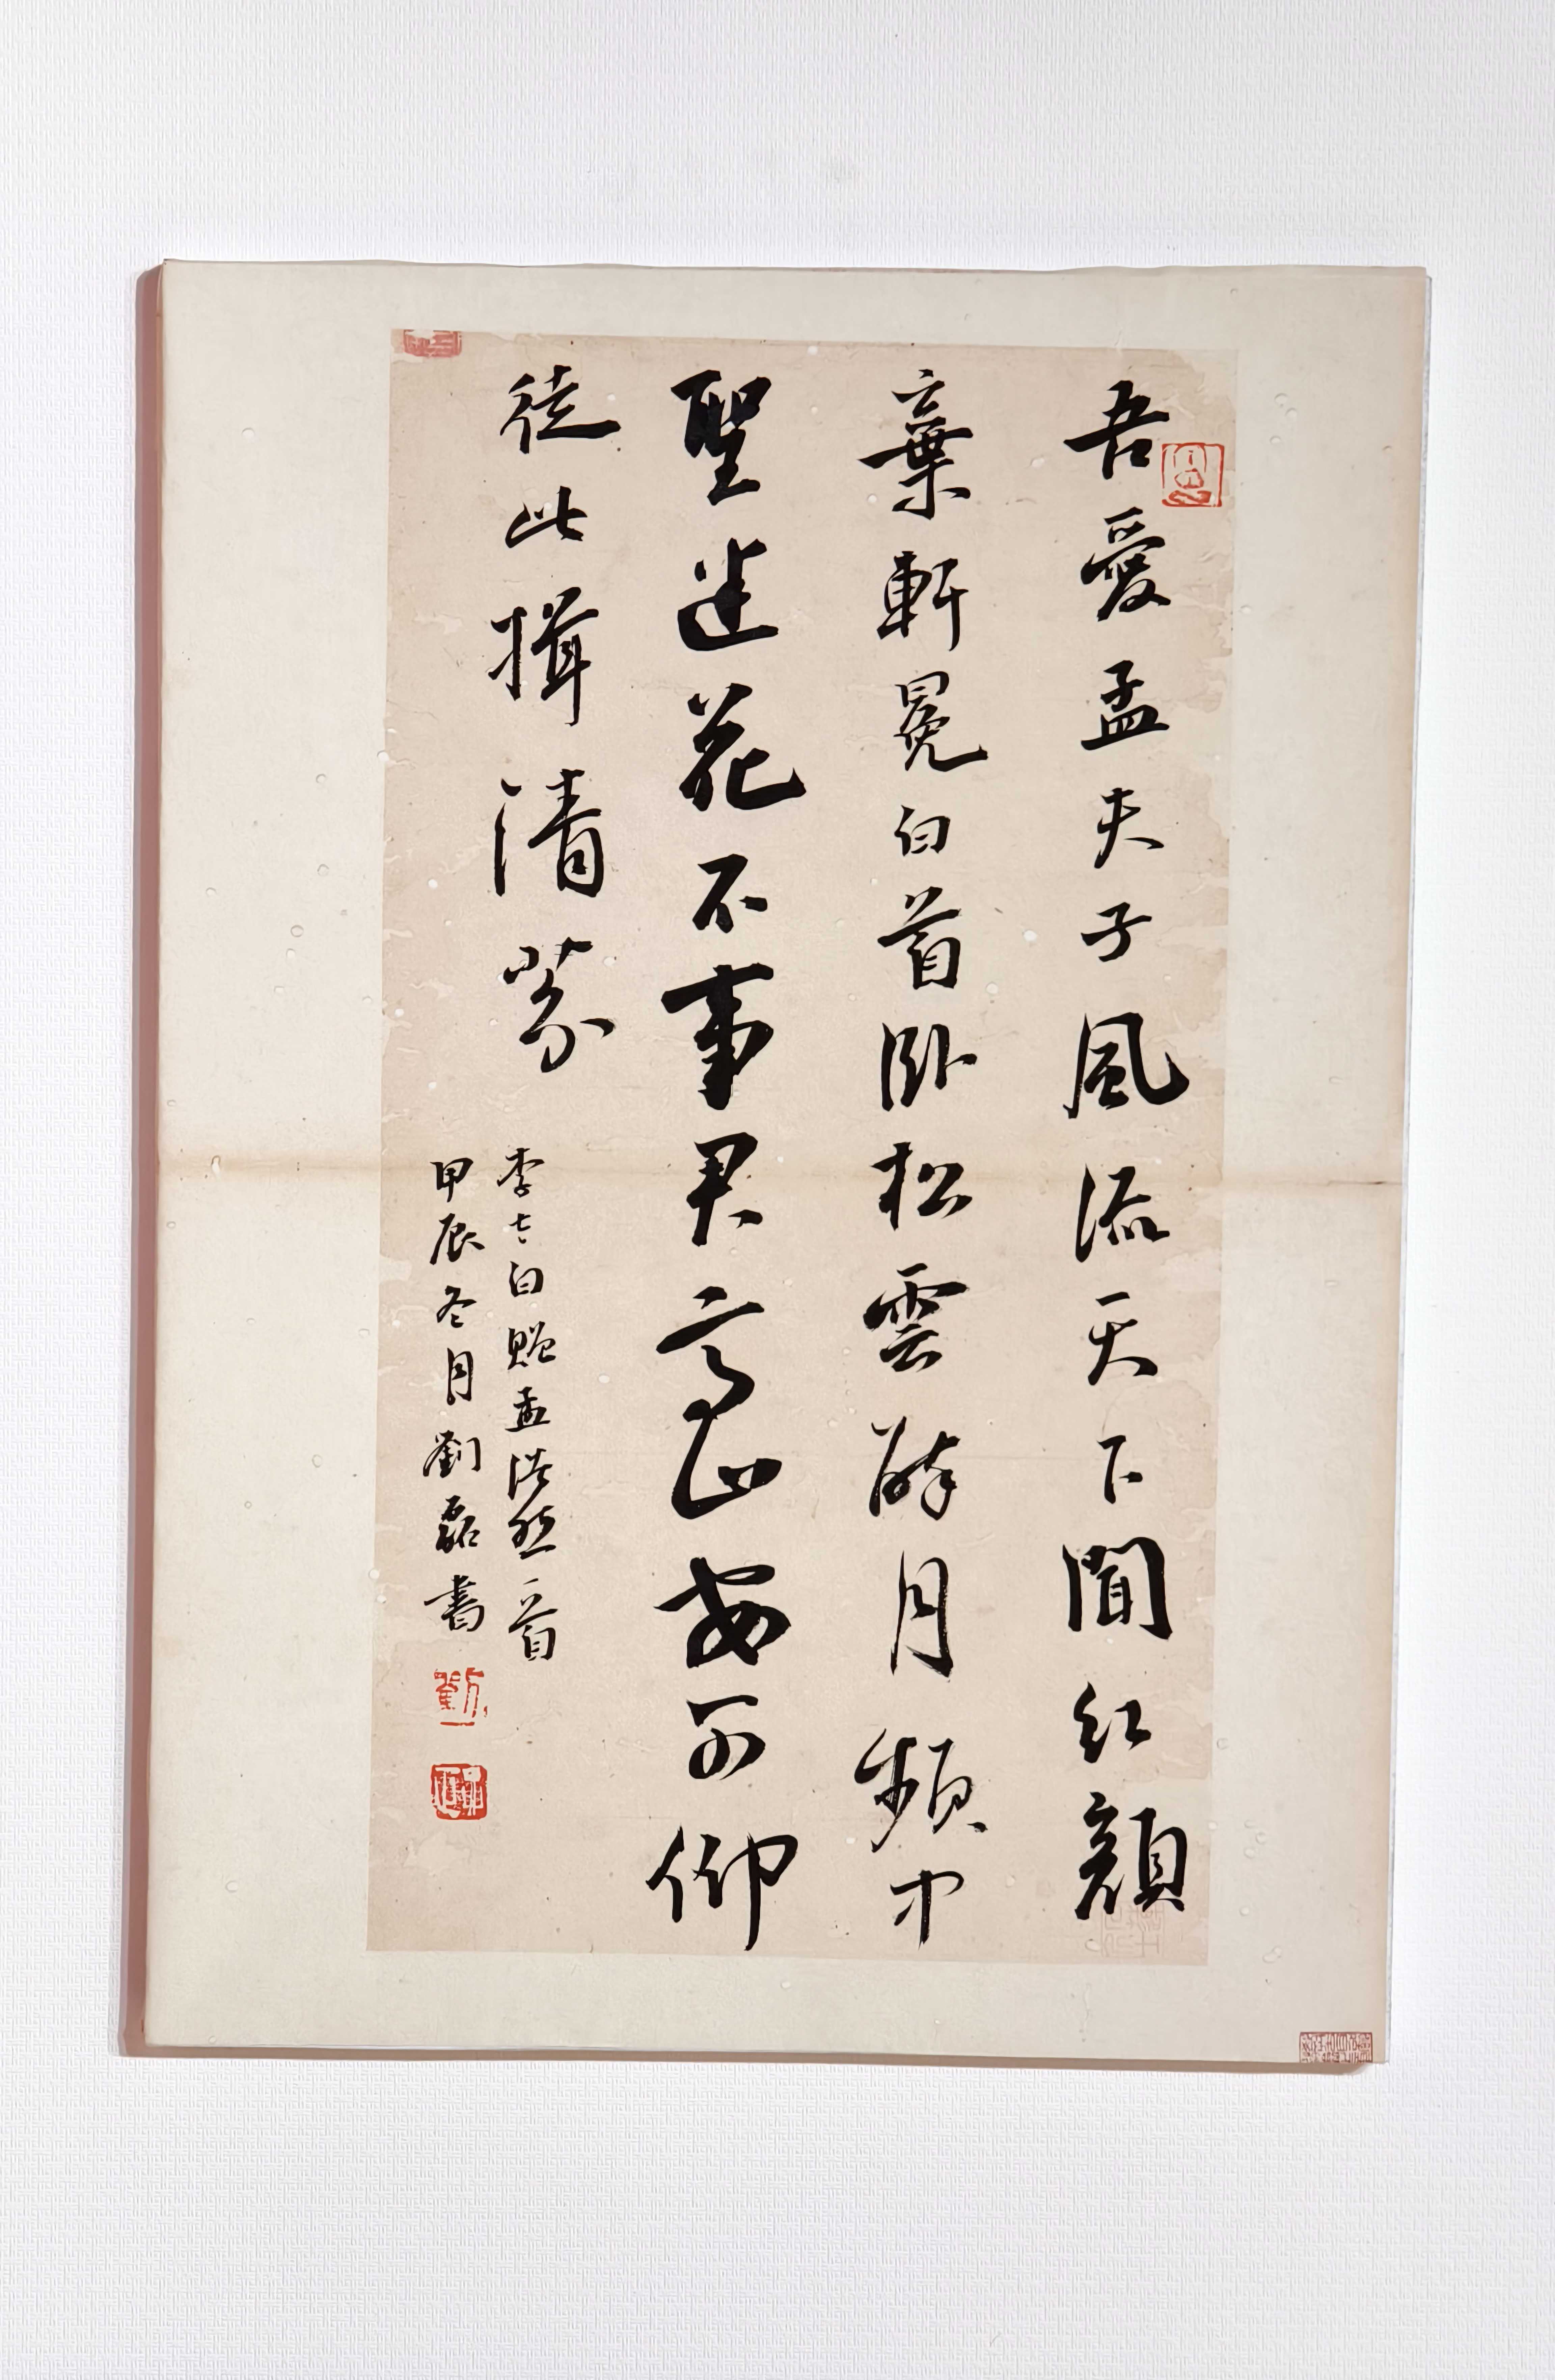 吾愛孟夫子風流天下聞紅顔
棄軒冕白首卧松雲醉月頻中
聖迷花不事君高山安可仰
徒此揖清芬
李太白贈孟浩然一首
甲辰冬月劉磊書